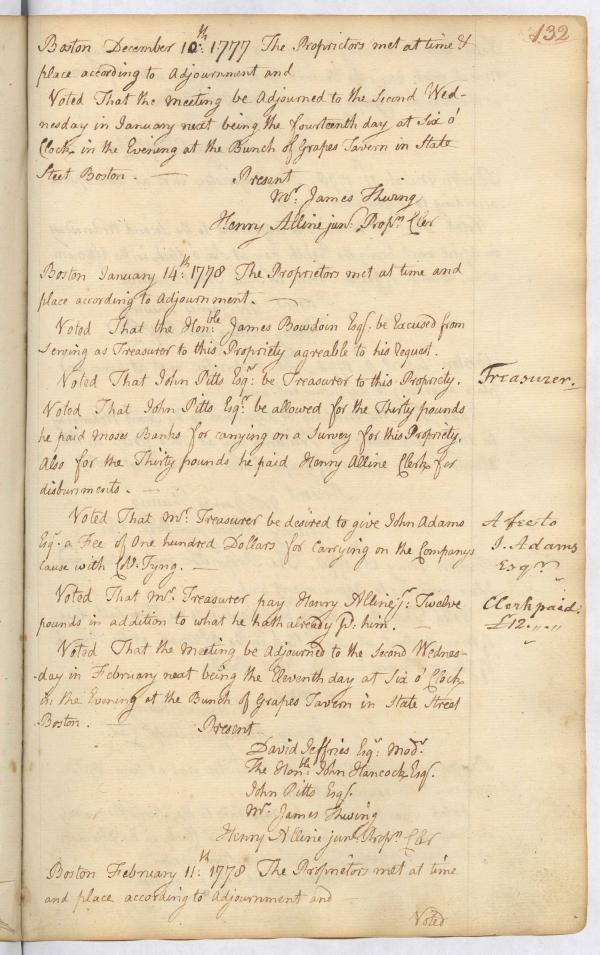 132
Boston December 10th: 1777 The Proprietors met at time &
place according to Adjournment and
Voted That the Meeting be Adjourned to the Second Wed-
nesday in January next being the fourteenth day at Six o'
Clock in the Evening at the Bunch of Grapes Tavern in State
Steet Boston. —
Present
Mr. James Thwing
Henry Alline junr. Propn. Cler
Boston January 14th: 1778 The Proprietors met at time and
place according to Adjournment. —
Voted That the Honble. James Bowdoin Esqr. be Excused from
Serving as Treasurer to this Propriety agreable to his request.
Voted That John Pitts Esqr: be Treasurer to this Propriety.
Treasurer.
Voted That John Pitts Esqr: be allowed for the Thirty pounds
he paid Moses Banks for carrying on a Survey for this Propriety,
Also for the Thirty pounds he paid Henry Alline Clerk for
disbursments. —
Voted That Mr. Treasurer be desired to give John Adams
Esqr. a Fee of One hundred Dollars for Carrying on the Companys
cause with Col: Tyng. —
A fee to
J. Adams
Esqr.
Voted That Mr. Treasurer pay Henry Alline jr: Twelve
pounds in addition to what he hath already pd: him. —
Clerk paid:
£12.,,.,,
Voted That the Meeting be Adjourned to the Second Wednes-
day in February next being the Eleventh day at Six o'Clock
in the Evening at the Bunch of Grapes Tavern in State Street
Boston. —
Present
David Jeffries Esqr: Modr.
The Honble: John Hancock Esqr.
John Pitts Esqr.
Mr. James Thwing
Henry Alline junr. Propn. Cler
Boston February 11th: 1778 The Proprietors met at time
and place according to Adjournment and —
Voted